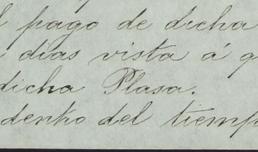 pago de dicha
dias vista á
dicha Plasa.
dentro del